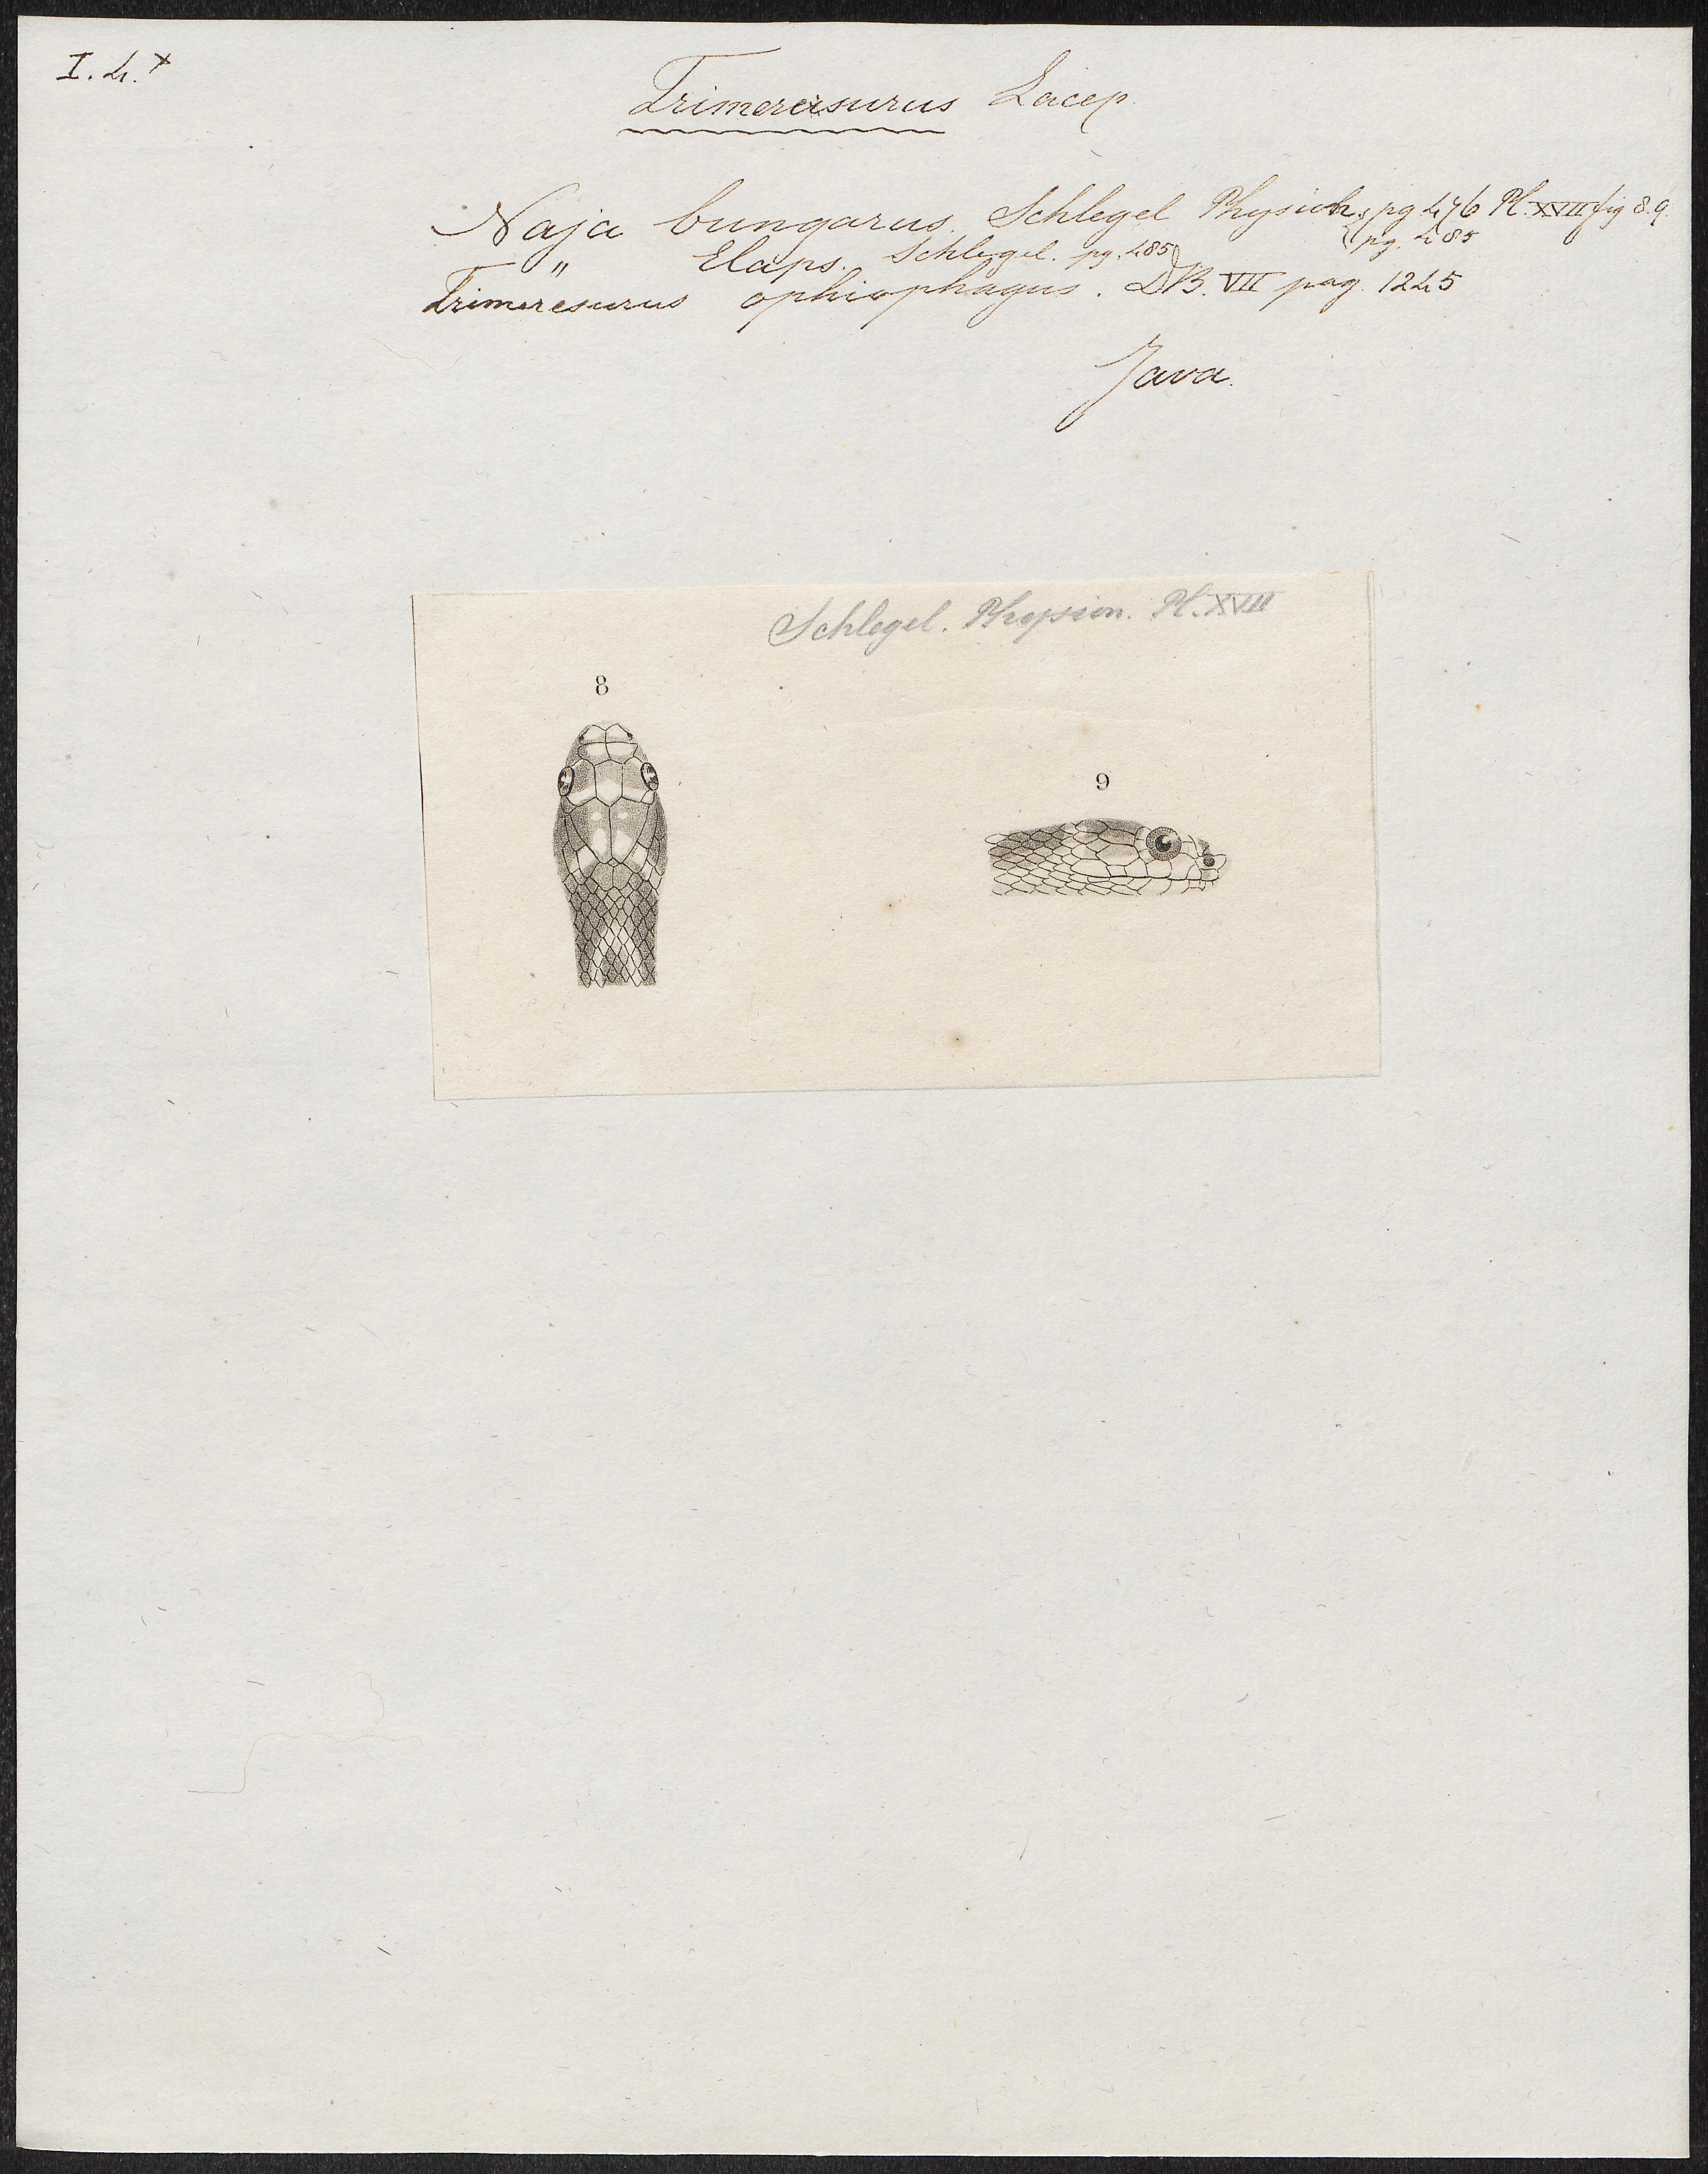 I. 4. x
Trimeresurus Lacep.
Naja bungarus. Schlegel Physion. pg 476 Pl. XVII fig 8.9.
pg. 485
" Elaps. Schlegel. pg. 485
Trimeresurus ophiophagus. DB. VII pag. 1245
Java.
Schlegel. Physion. Pl. XVII
8
9